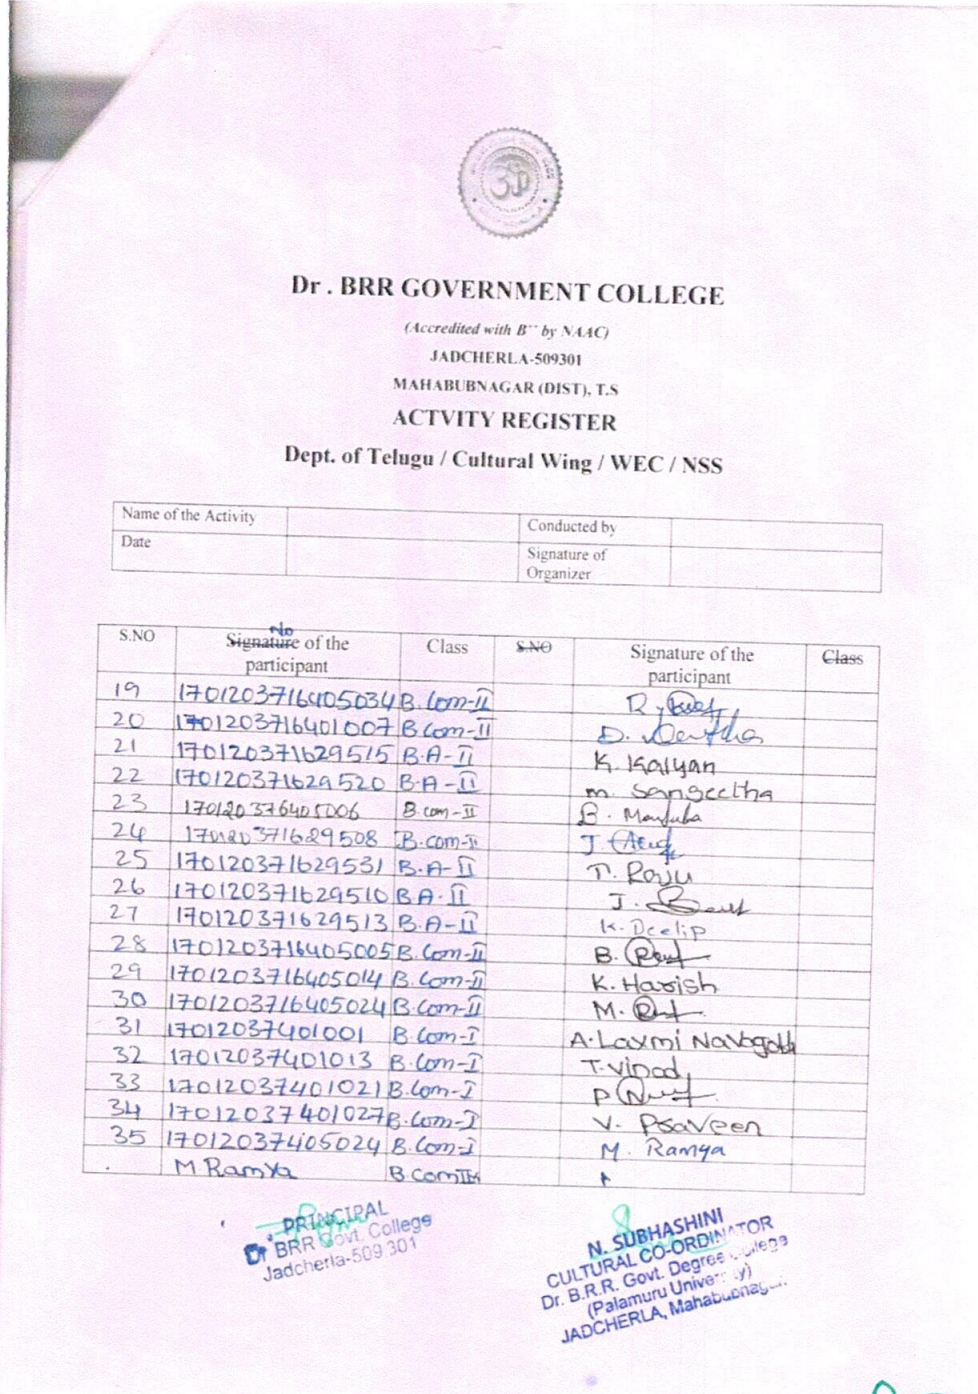 Dr . BRR GOVERNMENT COLLEGE
(Accredited with B++ by NAAC)
JADCHERLA-509301
MAHABUBNAGAR (DIST), T.S
ACTVITY REGISTER
Dept. of Telugu / Cultural Wing / WEC / NSS
Name of the Activity Conducted by
Date Signature of Organizer
S.NO Signature No of the participant Class S.NO Signature of the participant Class
19 1701203716405034 B.Com-II R.
20 1701203716401007 B.Com-II D.
21 170120371629515 B.A-II K. Kalyan
22 170120371629520 B.A-II m. Sangeetha
23 170120376405006 B.com-II B.
24 170120371629508 B.com-II J.
25 170120371629531 B.A-II T. Raju
26 170120371629510 B.A-II J.
27 170120371629513 B.A-II K. Deelip
28 1701203716405005 B.Com-II B.
29 1701203716405014 B.Com-II K. Harish
30 1701203716405024 B.Com-II M.
31 17012037401001 B.Com-I A. Laxmi
32 17012037401013 B.Com-I T. Vinod
33 17012037401021 B.Com-I P
34 17012037401027 B.Com-I V. Praveen
35 17012037405024 B.Com-I M. Ramya
M Ramya B.Com
PRINCIPAL
Dr BRR Govt. College
Jadcherla-509 301
N. SUBHASHINI
CULTURAL CO-ORDINATOR
Dr. B.R.R. Govt. Degree College
(Palamuru University)
JADCHERLA, Mahabubnagar.